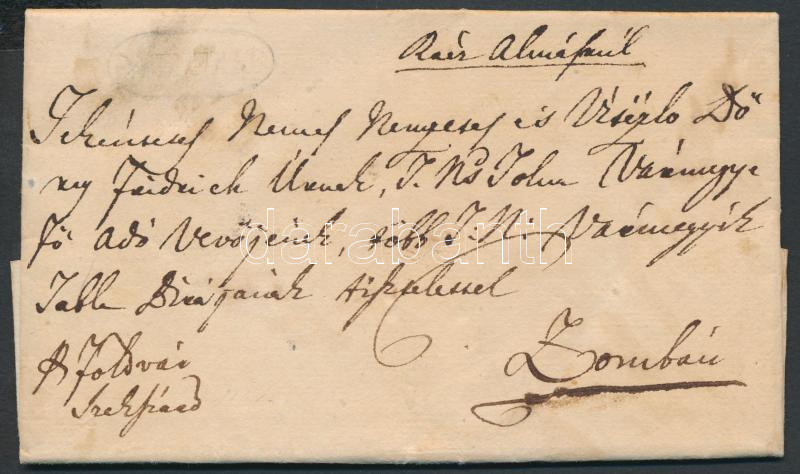 Rácz Almásrúl
Tekéntetes Nemes Nemzetes és Vitézlő Dő
ry Fridrich Úrnak, T. Ns Tolna Vármegye
fő adó Vevőjének, több T. N. Vármegyék
Tabla Birájának tisztelettel
Zombán
P Földvár
Szekszárd
darabanth